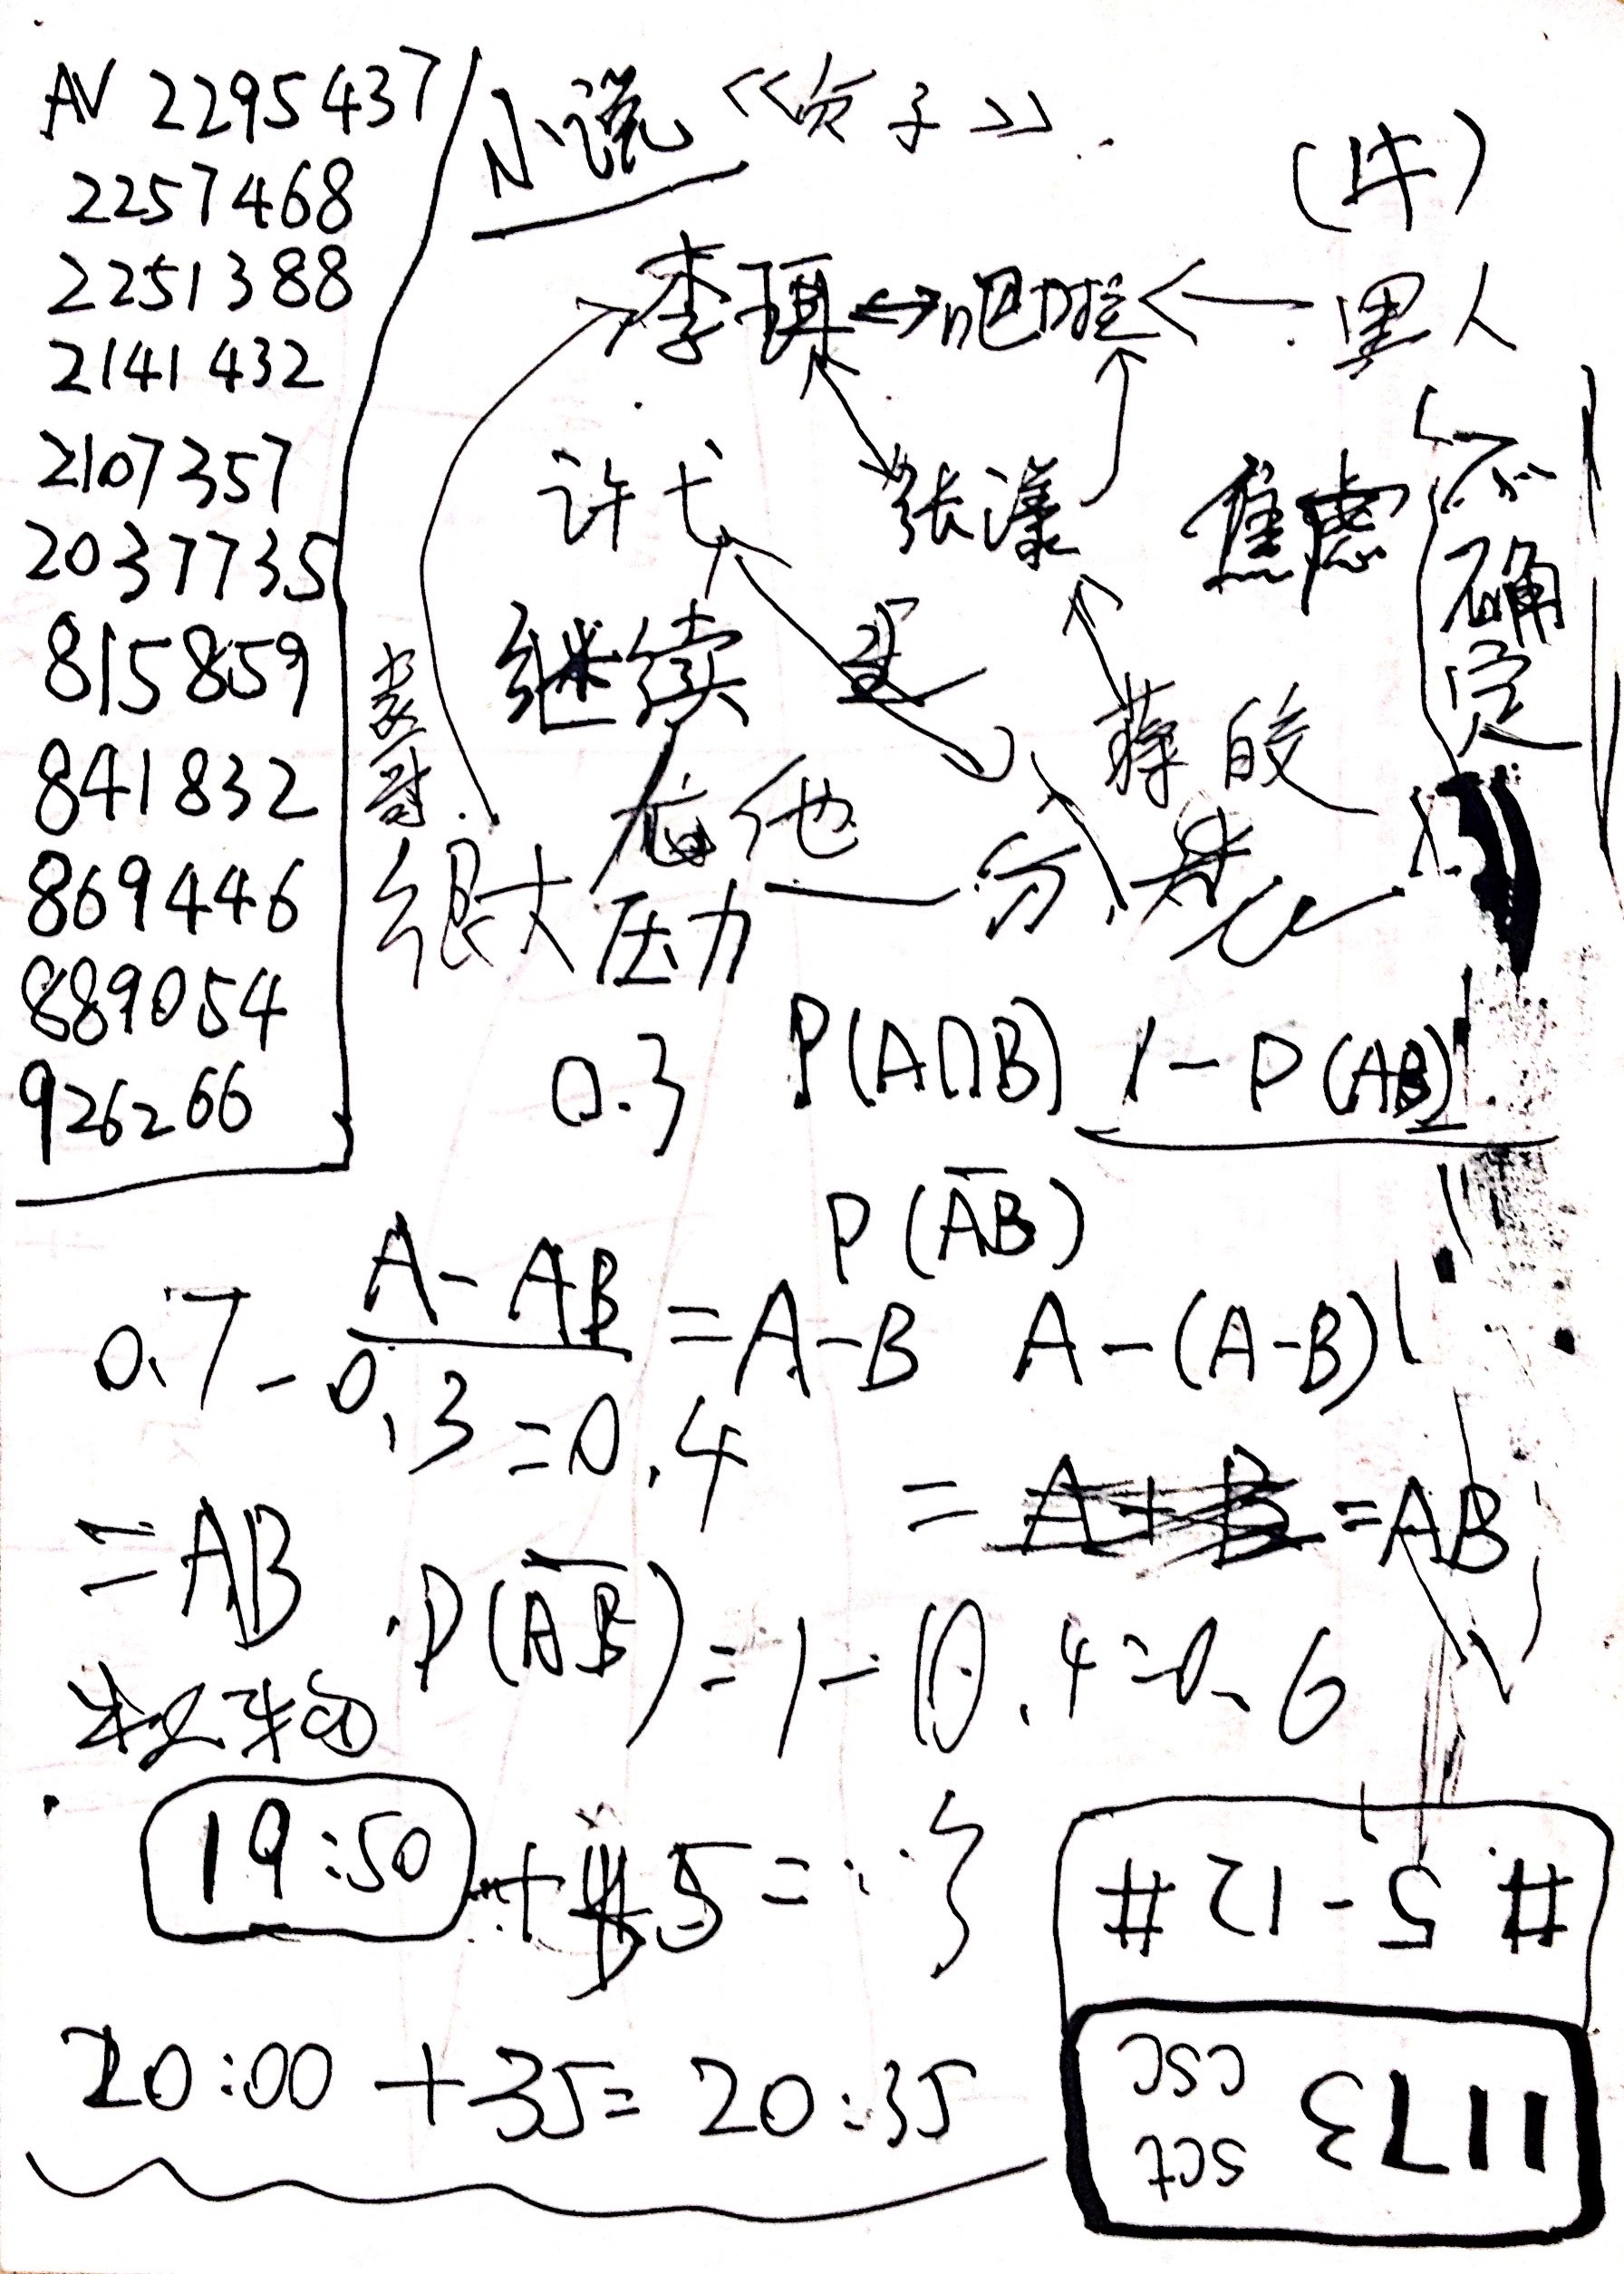 AV 2295437
2257468
2251388
2141432
2107357
2037735
815859
841832
869446
889054
926266
小说《贞子》
李琪 吧啦 黑人
许弋 张漾 焦虑
不确定
继续
蒋皎
他
很大压力
0.3 P(A∩B) 1-P(AB)
P(A̅B̅)
A-AB = A-B A-(A-B)
0.7-0.3=0.4
= A+B = AB
=AB P(A̅B̅)=1-0.4=0.6
19:50 + 5 =
20:00 + 35 = 20:35
#5-12#
1173 sct csc